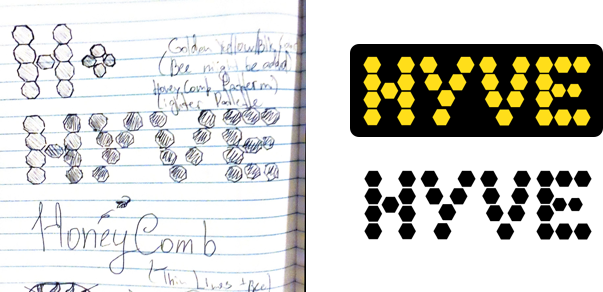 H
Golden Yellow
(Bee might be added
HoneyComb Pattern)
Lighter Palette
HYVE
HoneyComb
(Thin Lines + Bee)
HYVE
HYVE